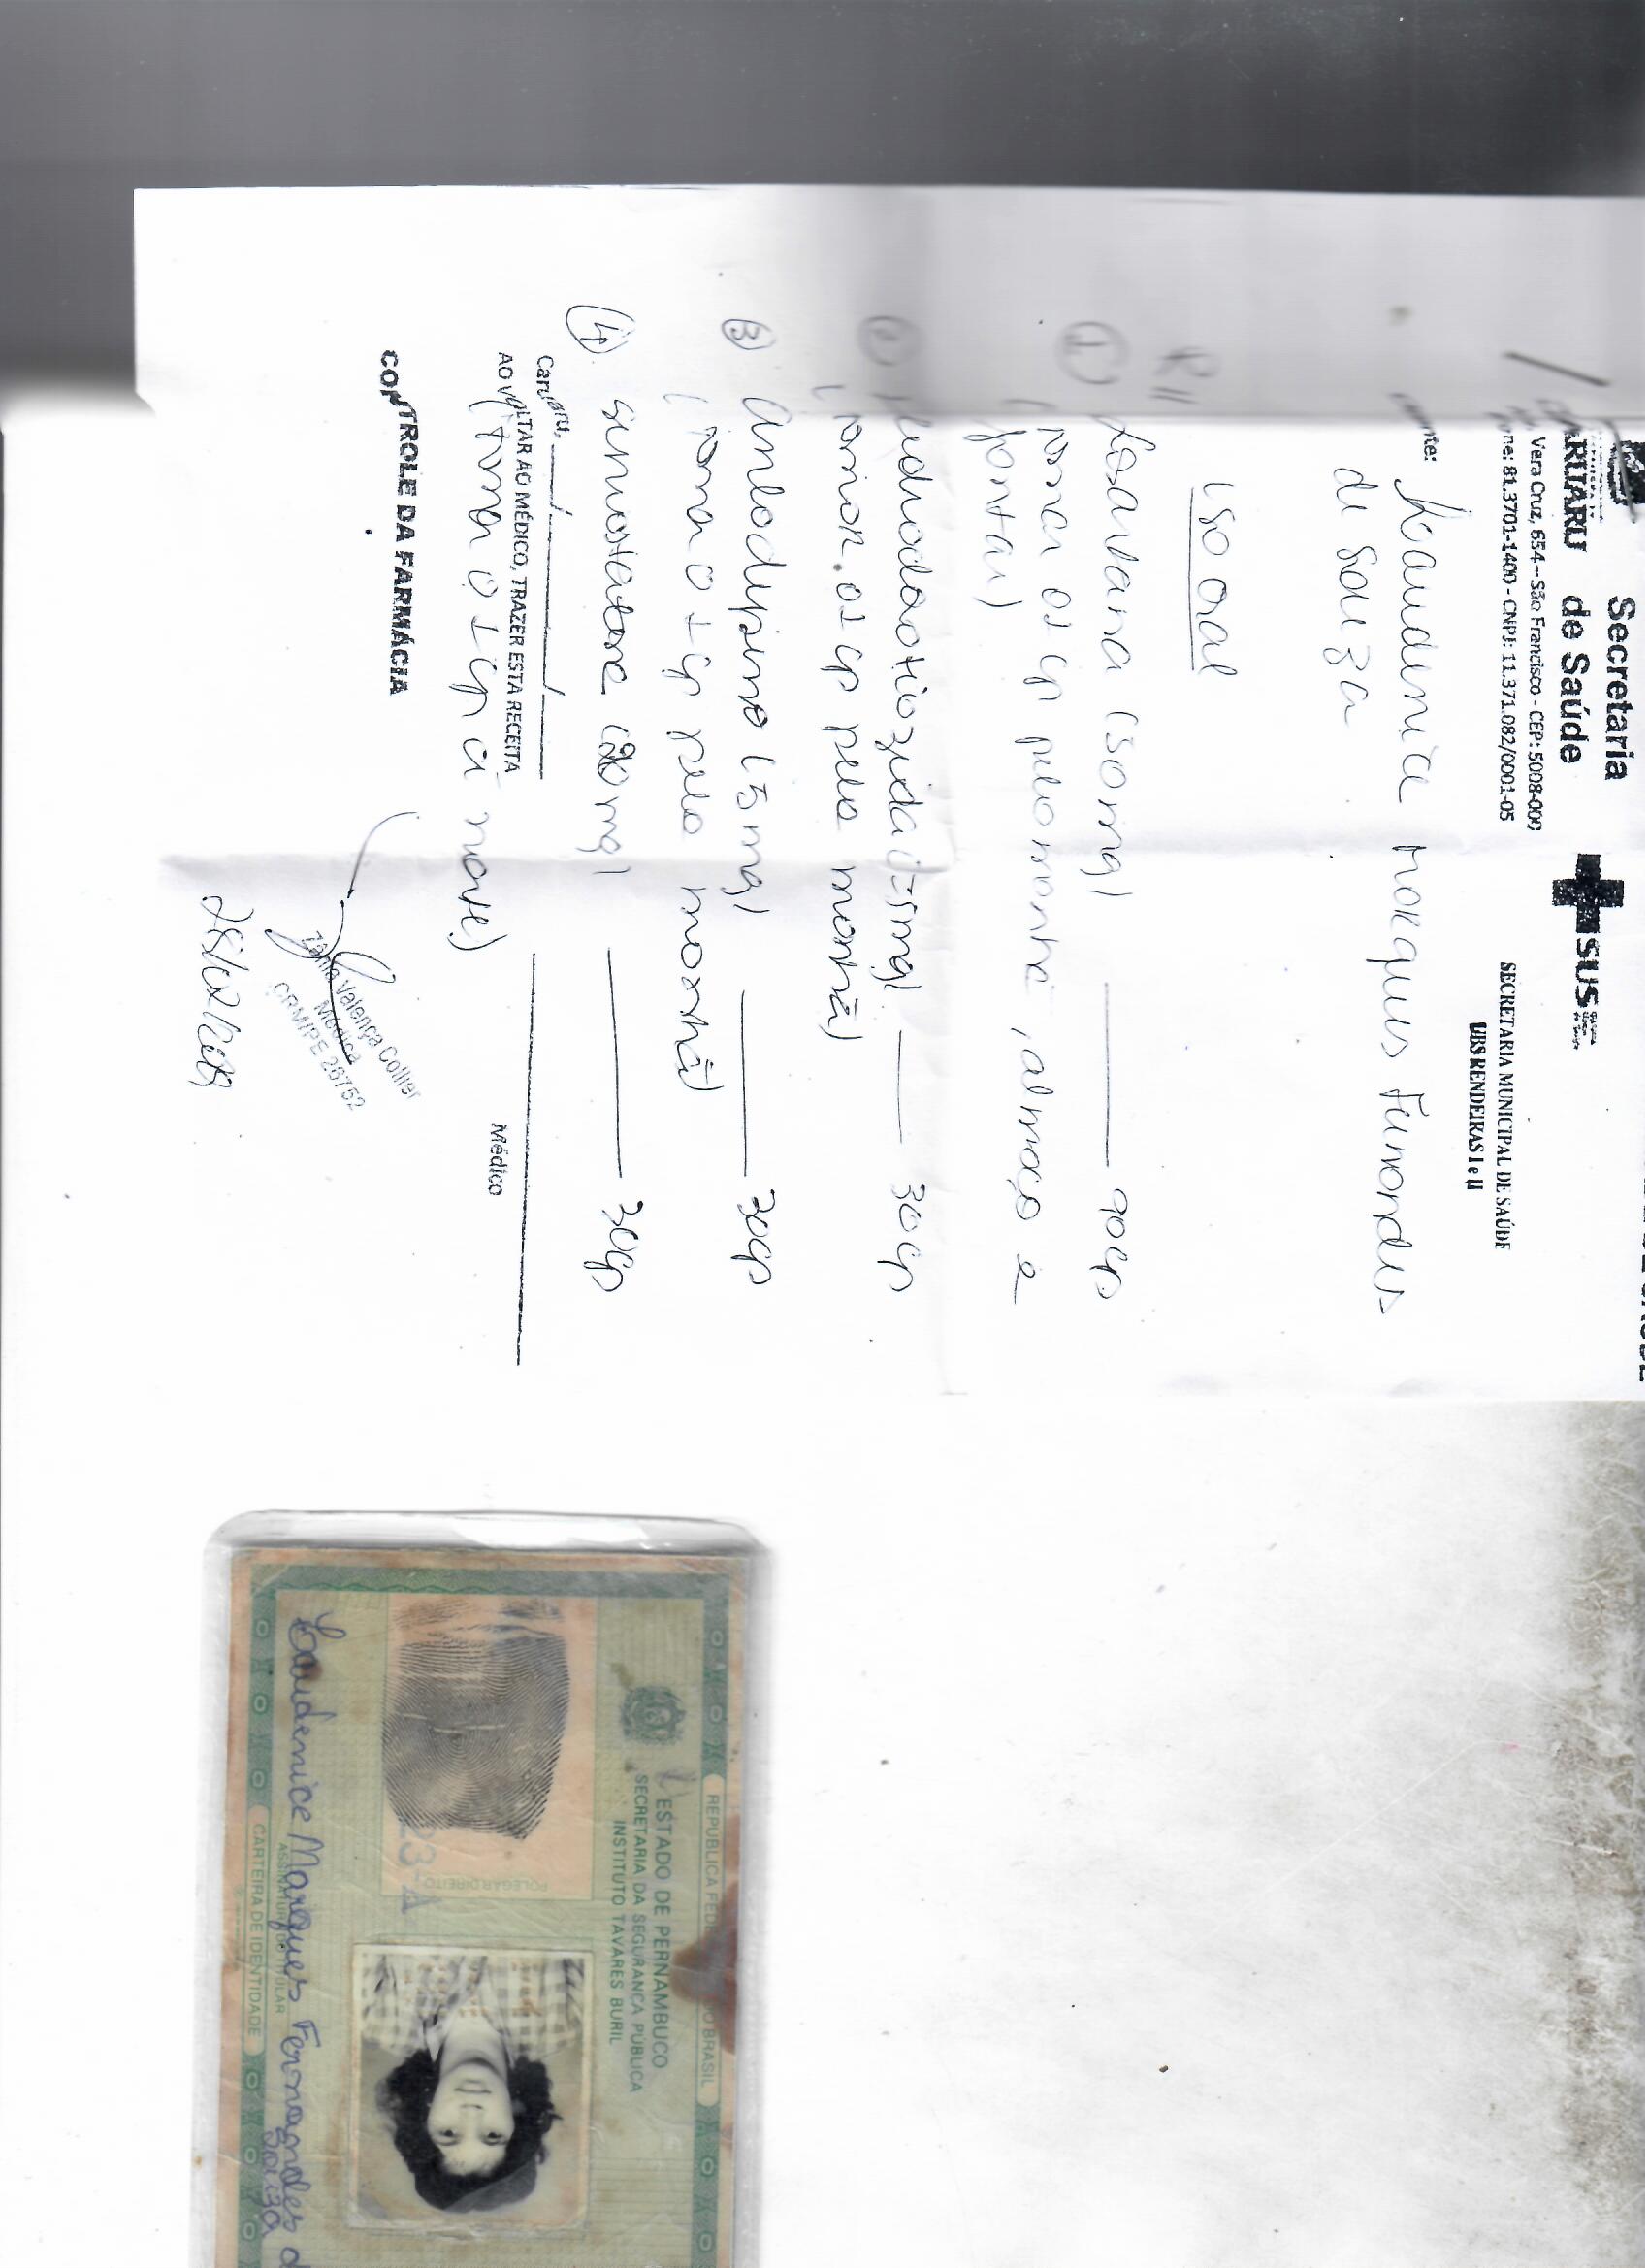 Secretaria
de Saúde
SUS
Vera Cruz, 654 – São Francisco - CEP: 5008-000
81.3701-1400 - CNPJ: 11.371.082/0001-05
SECRETARIA MUNICIPAL DE SAÚDE
UBS RENDEIRAS I e II
Laudenice Marques Fernandes
de Souza
Uso oral
① Losartana (50mg) 90cp
01 cp pela manhã, almoço e
jantar)
② (25mg) 30cp
(tomar 01 cp pela manhã)
③ Anlodipino (5mg) 30cp
(toma 01 cp pela manhã)
④ Sinvastatina (20mg) 30cp
(toma 01 cp à noite)
Caruaru, ___/___/___
AO VOLTAR AO MÉDICO, TRAZER ESTA RECEITA
Médico
CONTROLE DA FARMÁCIA
Valença Collier
Médica
CRM/PE 26752
REPÚBLICA FEDE DO BRASIL
ESTADO DE PERNAMBUCO
SECRETARIA DA SEGURANÇA PÚBLICA
INSTITUTO TAVARES BURIL
POLEGAR DIREITO
Laudenice Marques Fernandes d
Souza
ASSINATURA DO TITULAR
CARTEIRA DE IDENTIDADE